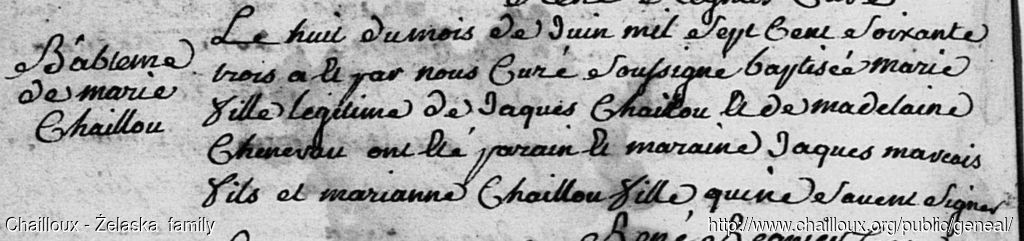 Le huit du mois de Juin mil Sept Cent Soixante
Bâbteme
de marie
Chaillou
trois a eté par nous Curé Soussigné baptiseé marie
fille legitime de Jaques Chaillou et de madelaine
Chenevau ont été parain et maraine Jaques marcais
fils et marianne Chaillou fille qui ne Savent Signer
René Regnier
Chailloux - Żelaska family
http://www.chailloux.org/public/geneal/